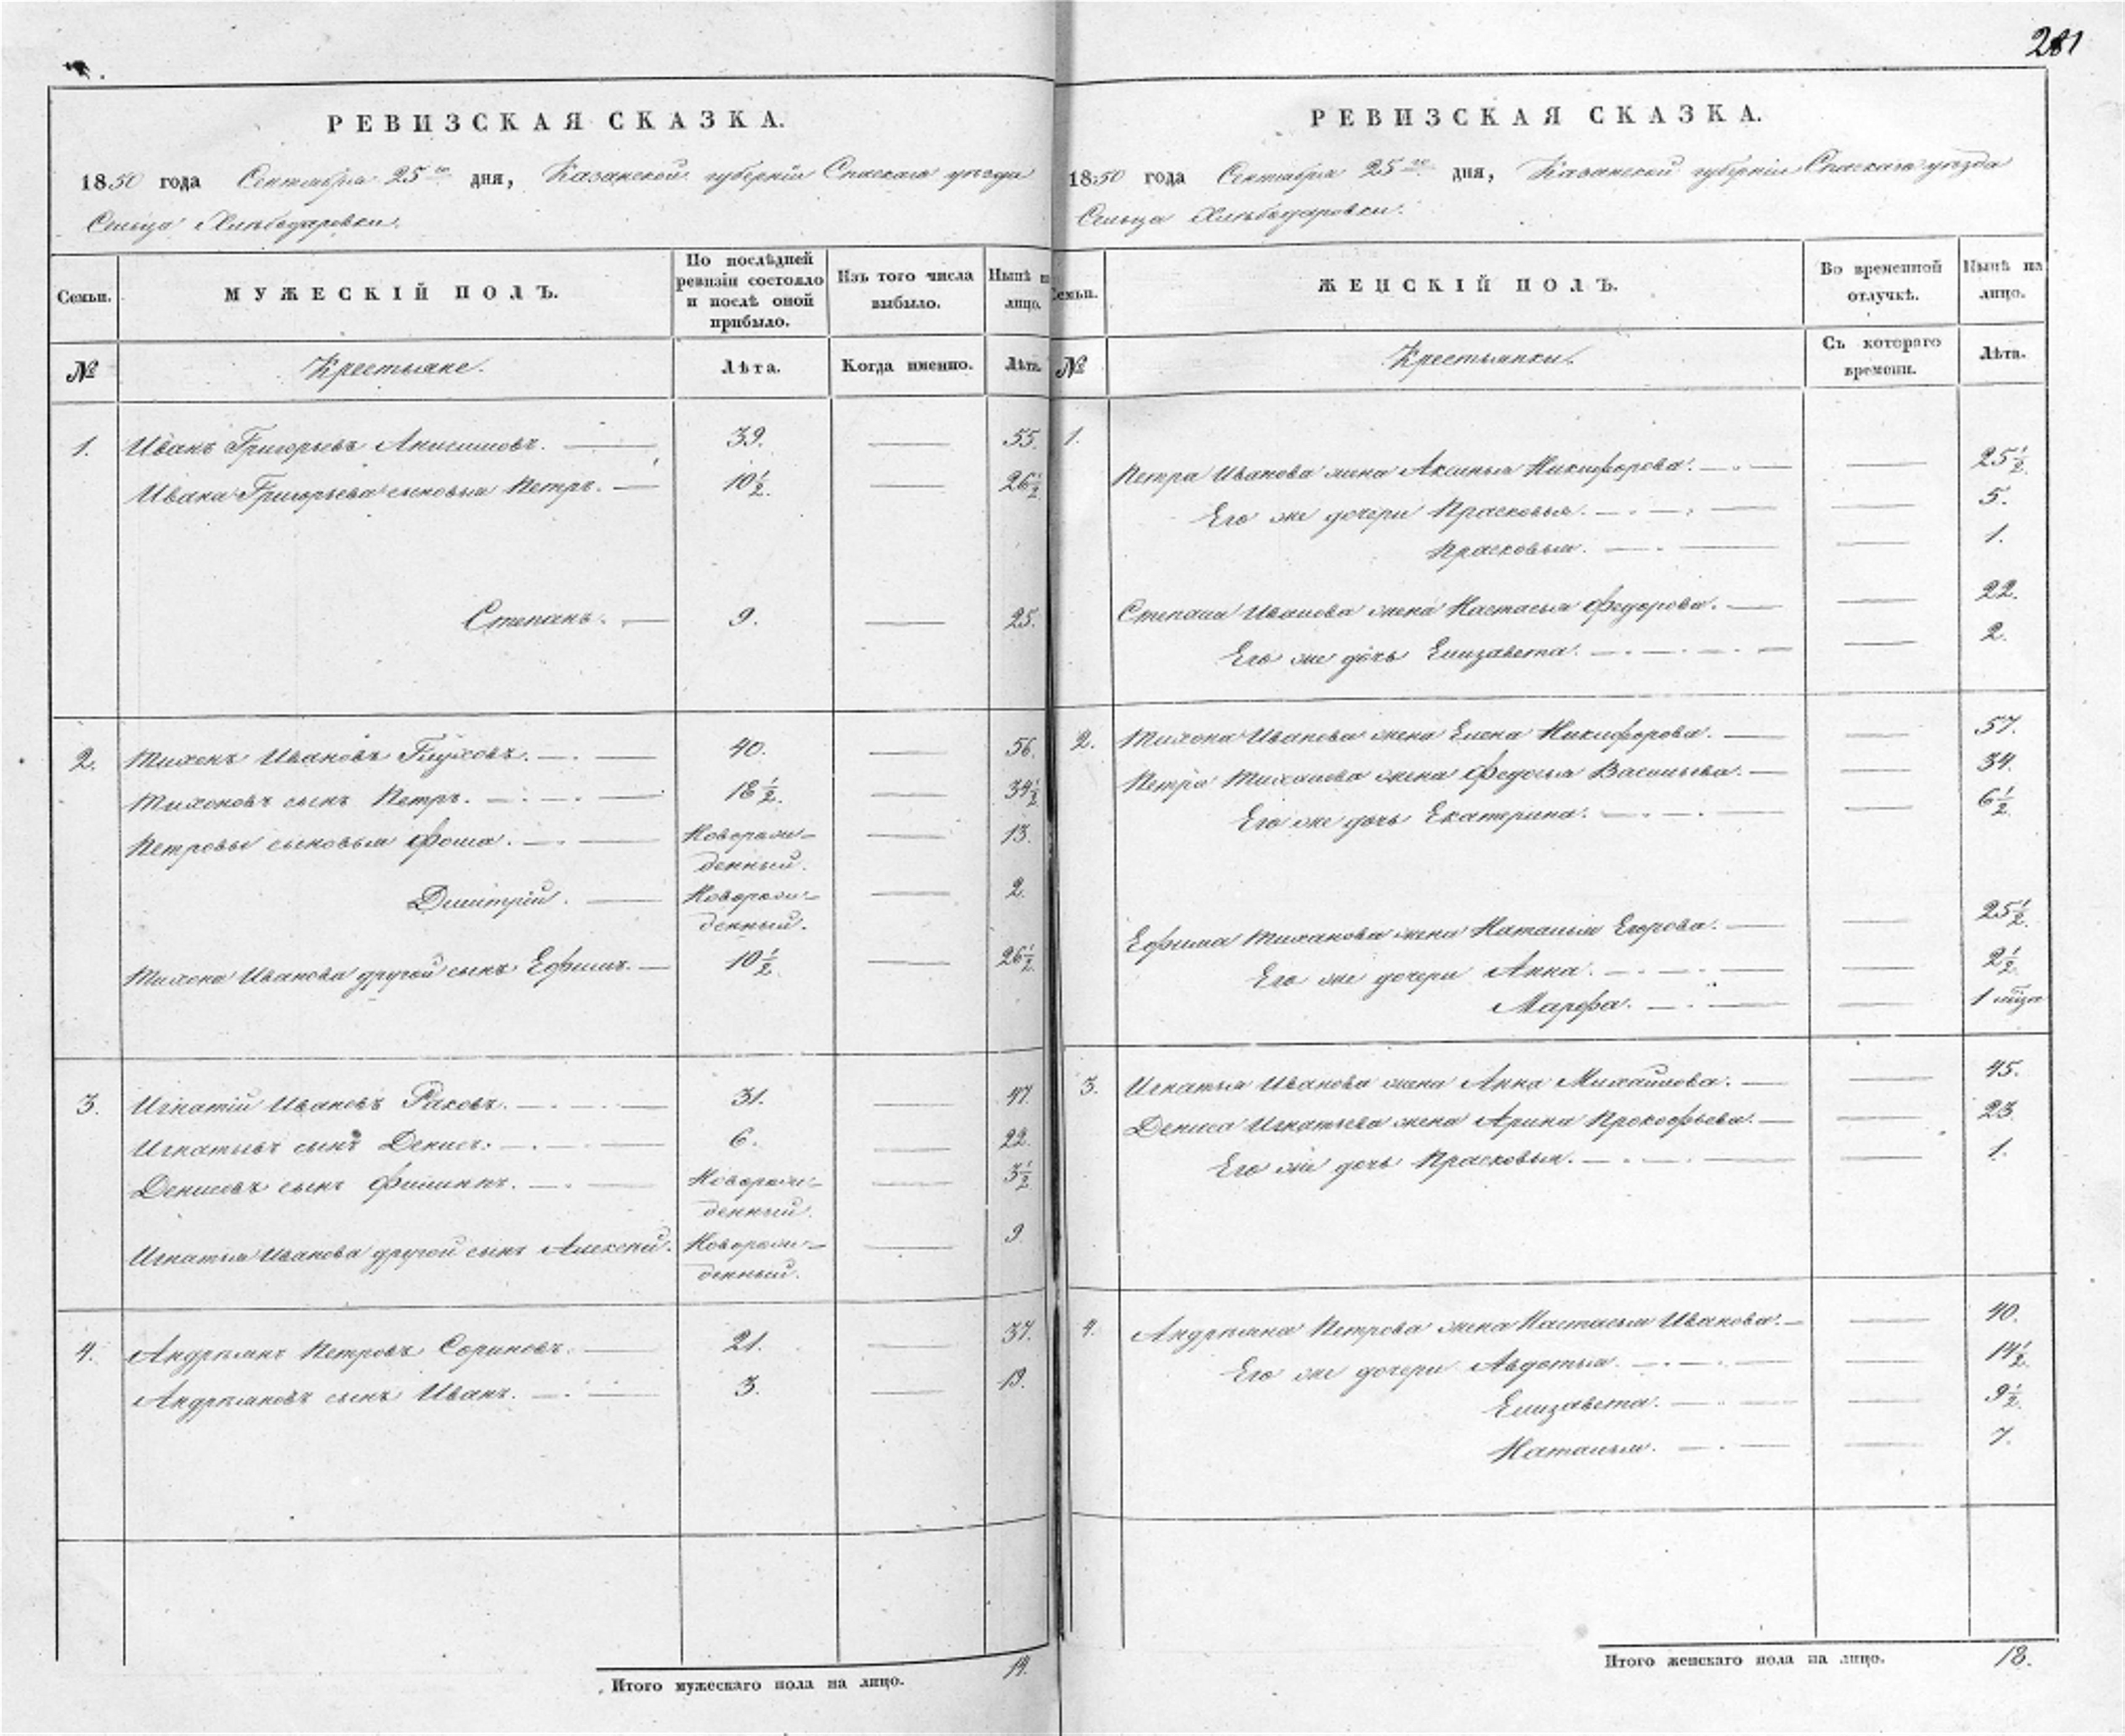 281
РЕВИЗСКАЯ СКАЗКА.
1850 года Сентября 25го дня, Казанской губерніи Спаскаго уезда
Сельца Хлебодаровки.
Семьи.
МУЖЕСКІЙ ПОЛЪ.
По последней
ревизіи состояло
и после оной
прибыло.
Изъ того числа
выбыло.
Ныне на
лицо.
№
Крестьяне.
Лѣта.
Когда именно.
Лѣта.
1. Иванъ Григорьевъ Анисимовъ. 39. 55.
Ивана Григорьева сыновья Петръ. 10½. 26½.
Степанъ. 9. 25.
2. Тихонъ Ивановъ Глуховъ. 40. 56.
Тихоновъ сынъ Петръ. 18½. 34½.
Петровы сыновья Фома. Новорож-
денный. 13.
Дмитрій. Новорож-
денный. 2.
Тихона Иванова другой сынъ Ефимъ. 10½. 26½.
3. Игнатій Ивановъ Раковъ. 31. 47.
Игнатьевъ сынъ Денисъ. 6. 22.
Денисовъ сынъ Филиппъ. Новорож-
денный. 3½.
Игнатья Иванова другой сынъ Алексей. Новорож-
денный. 9.
4. Андреянъ Петровъ 21. 37.
Андреяновъ сынъ Иванъ. 3. 19.
Итого мужескаго пола на лицо. 14.
РЕВИЗСКАЯ СКАЗКА.
1850 года Сентября 25го дня, Казанской губерніи Спаскаго уезда
Сельца Хлебодаровки.
Семьи.
ЖЕНСКІЙ ПОЛЪ.
Во временной
отлучкѣ.
Ныне на
лицо.
№
Крестьянки.
Съ котораго
времени.
Лѣта.
1.
Петра Иванова жена Аксинья Никифорова. 25½.
Его же дочери Прасковья. 5.
Прасковья. 1.
Степана Иванова жена Настасья Федорова. 22.
Его же дочь Елизавета. 2.
2. Тихона Иванова жена Елена Никифорова. 57.
Петра Тихонова жена Федосья Васильева. 34.
Его же дочь Екатерина. 6½.
Ефима Тихонова жена Наталья Егорова. 25½.
Его же дочери Анна. 2½.
Марфа. 1 мѣца
3. Игнатья Иванова жена Анна Михайлова. 45.
Дениса Игнатьева жена Арина Прокофьева. 23.
Его же дочь Прасковья. 1.
4. Андреяна Петрова жена Настасья Иванова. 40.
Его же дочери Авдотья. 14½.
Елизавета. 9½.
Наталья. 7.
Итого женскаго пола на лицо. 18.